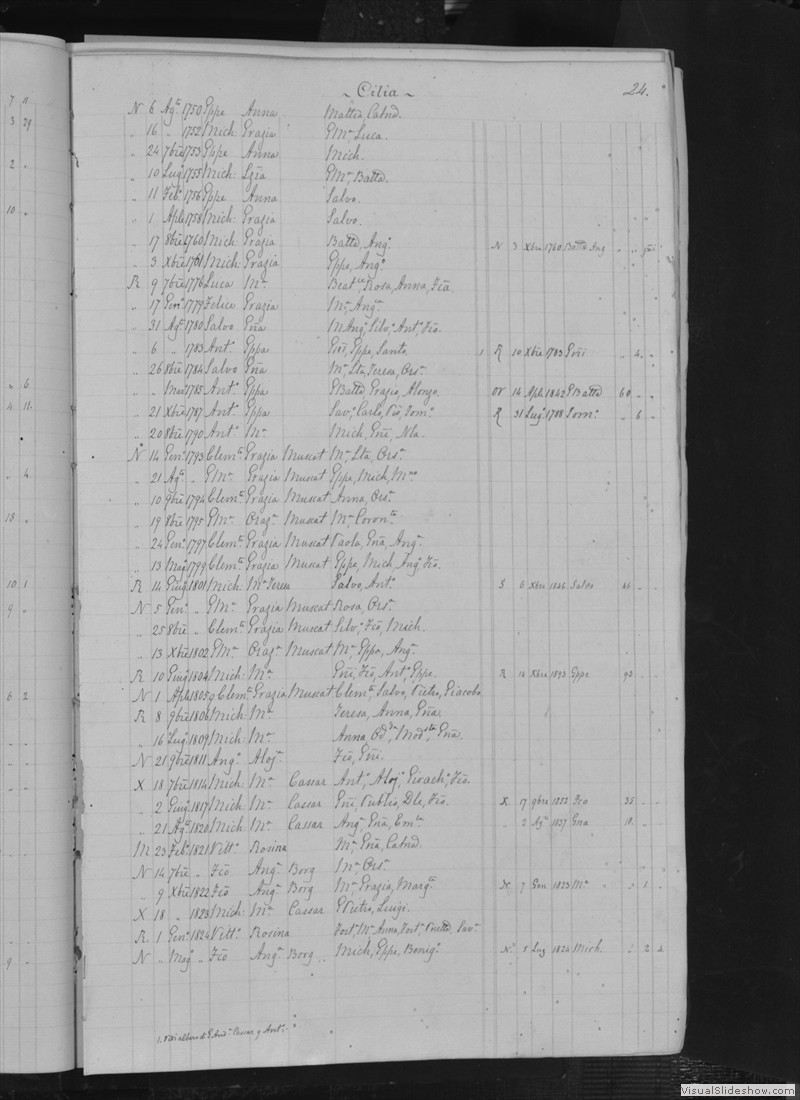 7 11
3 29
2 "
10 "
" 6
4 11
" 4
18 "
10 1
9 "
6 2
9 "
~ Cilia ~ 24.
N 6 Agº 1750 Eppe Anna Mattia, Catnd.
" 16 " 1752 Mich: Grazia GMª Luca.
" 24 7bre 1753 Eppe Anna Mich.
" 10 Lugº 1755 Mich: Gzia GMª Batta.
" 11 Febº 1756 Eppe Anna Salvo.
" 1 Aple 1758 Mich: Grazia Salvo.
" 17 8bre 1760 Mich: Grazia Batta, Angº N 3 Xbre 1760 Batta Ang " "
" 3 Xbre 1761 Mich: Grazia Eppe, Angº
R 9 7bre 1776 Luca Mª Beatce, Rosa, Anna, Fca
" 17 Genº 1779 Felice Grazia Mª, Angª
" 31 Agº 1780 Salvo Gña M Angº, Silvº, Antº, Fcõ.
" 6 " 1783 Antº Eppa Gni, Eppe, Santo 1 R 10 Xbre 1783 Gni " 4 "
" 26 8bre 1784 Salvo Gña Mª Lta, Teresa, Orsª
" " Magº 1785 Antº Eppa GBatta Grazio, Alonzo. or 14 Aple 1842 GBatta 60 " "
" 21 Xbre 1787 Antº Eppa Savº, Carlo, Pio, Domº R 31 Lugº 1788 Domº " 6 "
" 20 8bre 1790 Antº Mª Mich, Gni, Nla.
N 14 Genº 1793 Clemte Grazia Muscat Mª Lta, Orsª
" 21 Agº " GMª Grazia Muscat Eppe, Mich, Mno
" 10 9bre 1794 Clemte Grazia Muscat Anna, Orsª
" 19 8bre 1795 GMª Orazª Muscat Mª, Coronta
" 24 Genº 1797 Clemte Grazia Muscat Paola, Gña, Angª
" 13 Magº 1799 Clemte Grazia Muscat Eppe, Mich, Angº, Fcõ.
R 14 Giugº 1801 Mich: Mª Teresa Salvo, Antº S 6 Xbre 1846 Salvo 46 " "
N 5 Genº " GMª Grazia Muscat Rosa, Orsª
" 25 8bre " Clemte Grazia Muscat Silvº, Fcõ, Mich.
" 13 Xbre 1802 GMª Orazª Muscat Mª, Eppa, Angª
R 10 Giugº 1804 Mich: Mª Gni, Fcõ, Antº, Eppe R 14 Xbre 1893 Eppe 93 " "
N 1 Aple 1805 Clemte Grazia Muscat Clemte, Salvo, Pietro, Giacobo
R 8 9bre 1806 Mich: Mª Teresa, Anna, Gña.
" 16 Lugº 1809 Mich: Mª Anna, Oda, Modsta, Gña.
N 21 9bre 1811 Angº Alojª Fcõ, Gni.
X 18 7bre 1814 Mich: Mª Cassar Antº, Alojº, Gioachº, Fcõ.
" 2 Giugº 1817 Mich: Mª Cassar Gni, Publio, Dle, Fcõ. X 17 9bre 1852 Fcõ 35 " "
" 21 Agº 1820 Mich: Mª Cassar Angª, Gña, Emla " 2 Agº 1837 Gna 18 " "
M 23 Febº 1821 Vittº Rosina Mª, Gña, Catnd.
N 14 7bre " Fcõ Angª Borg Mª, Orsª
" 9 Xbre 1822 Fcõ Angª Borg Mª, Grazia, Margta N 7 Gen 1823 Mª " 1 "
X 18 " 1823 Mich: Mª Cassar GPietro, Luigi.
R 1 Genº 1824 Vittº Rosina Fortº, Mª Anna, Savª
N " Magº " Fcõ Angª Borg Mich, Eppe, Benigº N 5 Lug 1824 Mich. " 2 "
VisualSlideshow.com